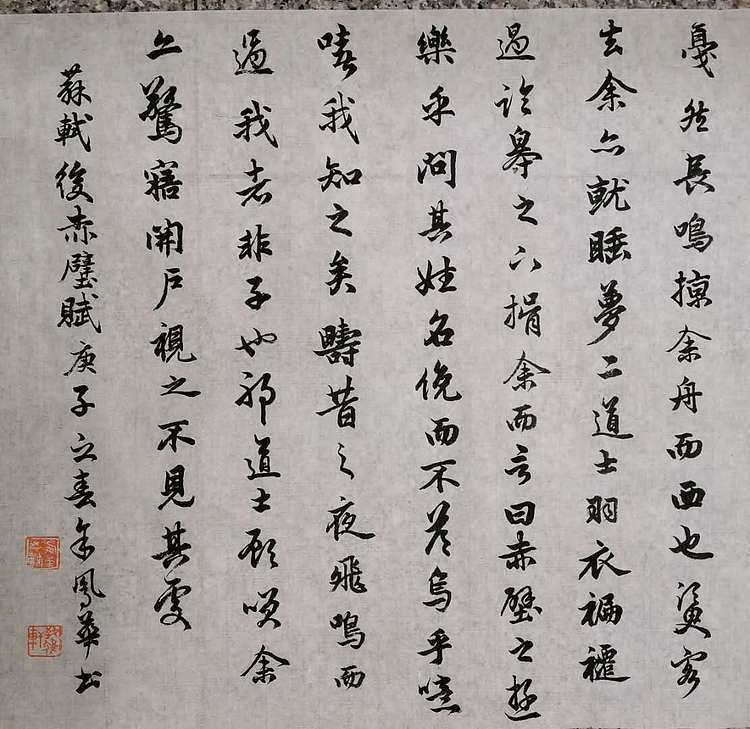 戛然長鳴掠余舟而西也須臾客
去余亦就睡夢二道士羽衣褊褼
過臨皋之下揖余而言曰赤壁之遊
樂乎問其姓名俛而不答烏乎噫
嘻我知之矣疇昔之夜飛鳴而
過我者非子也邪道士顧笑余
亦驚寤開戶視之不見其處
蘇軾後赤壁賦庚子之春余鳳華書